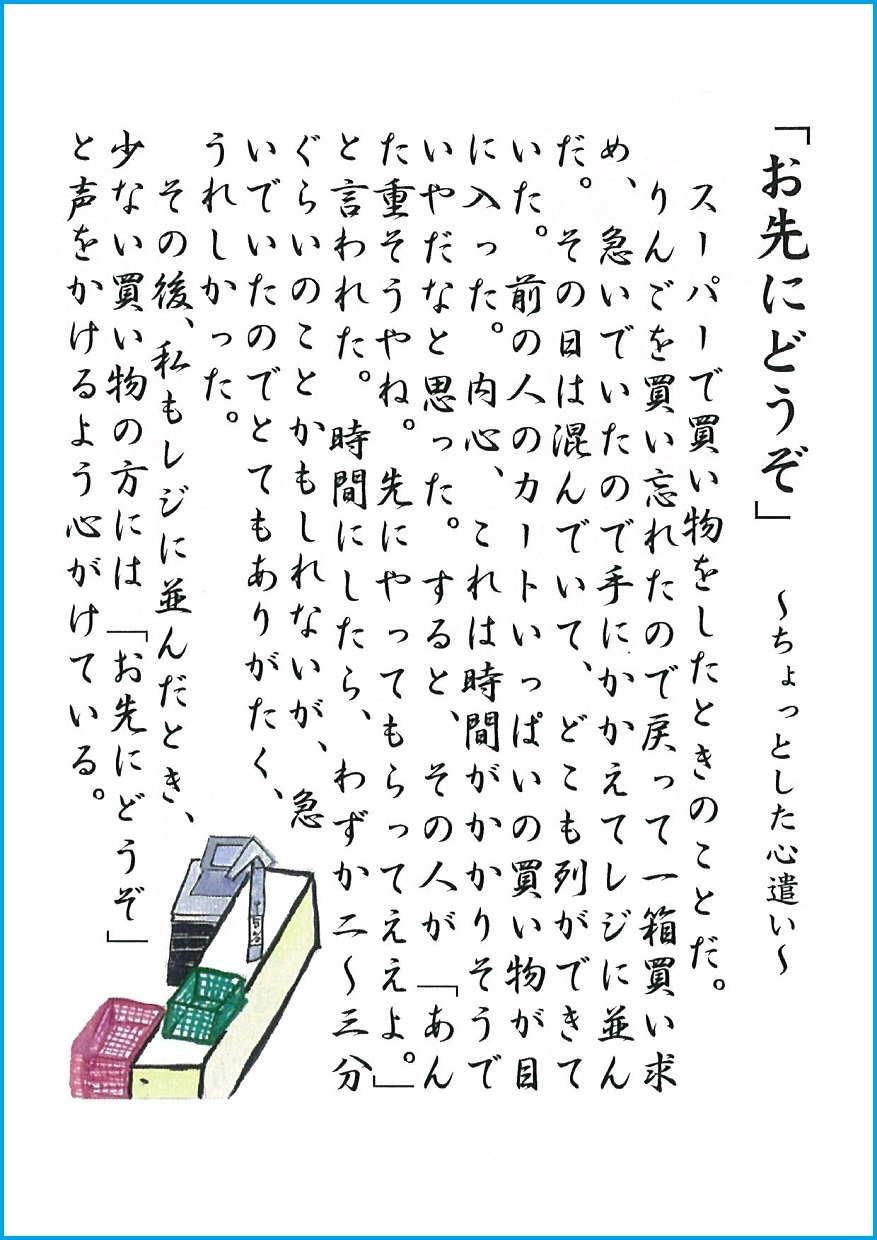 「お先にどうぞ」　～ちょっとした心遣い～
スーパーで買い物をしたときのことだ。
りんごを買い忘れたので戻って一箱買い求
め、急いでいたので手にかかえてレジに並ん
だ。その日は混んでいて、どこも列ができて
いた。前の人のカートいっぱいの買い物が目
に入った。内心、これは時間がかかりそうで
いやだなと思った。すると、その人が「あん
た重そうやね。先にやってもらってええよ。」
と言われた。時間にしたら、わずか二～三分
ぐらいのことかもしれないが、急
いでいたのでとてもありがたく、
うれしかった。
その後、私もレジに並んだとき、
少ない買い物の方には「お先にどうぞ」
と声をかけるよう心がけている。